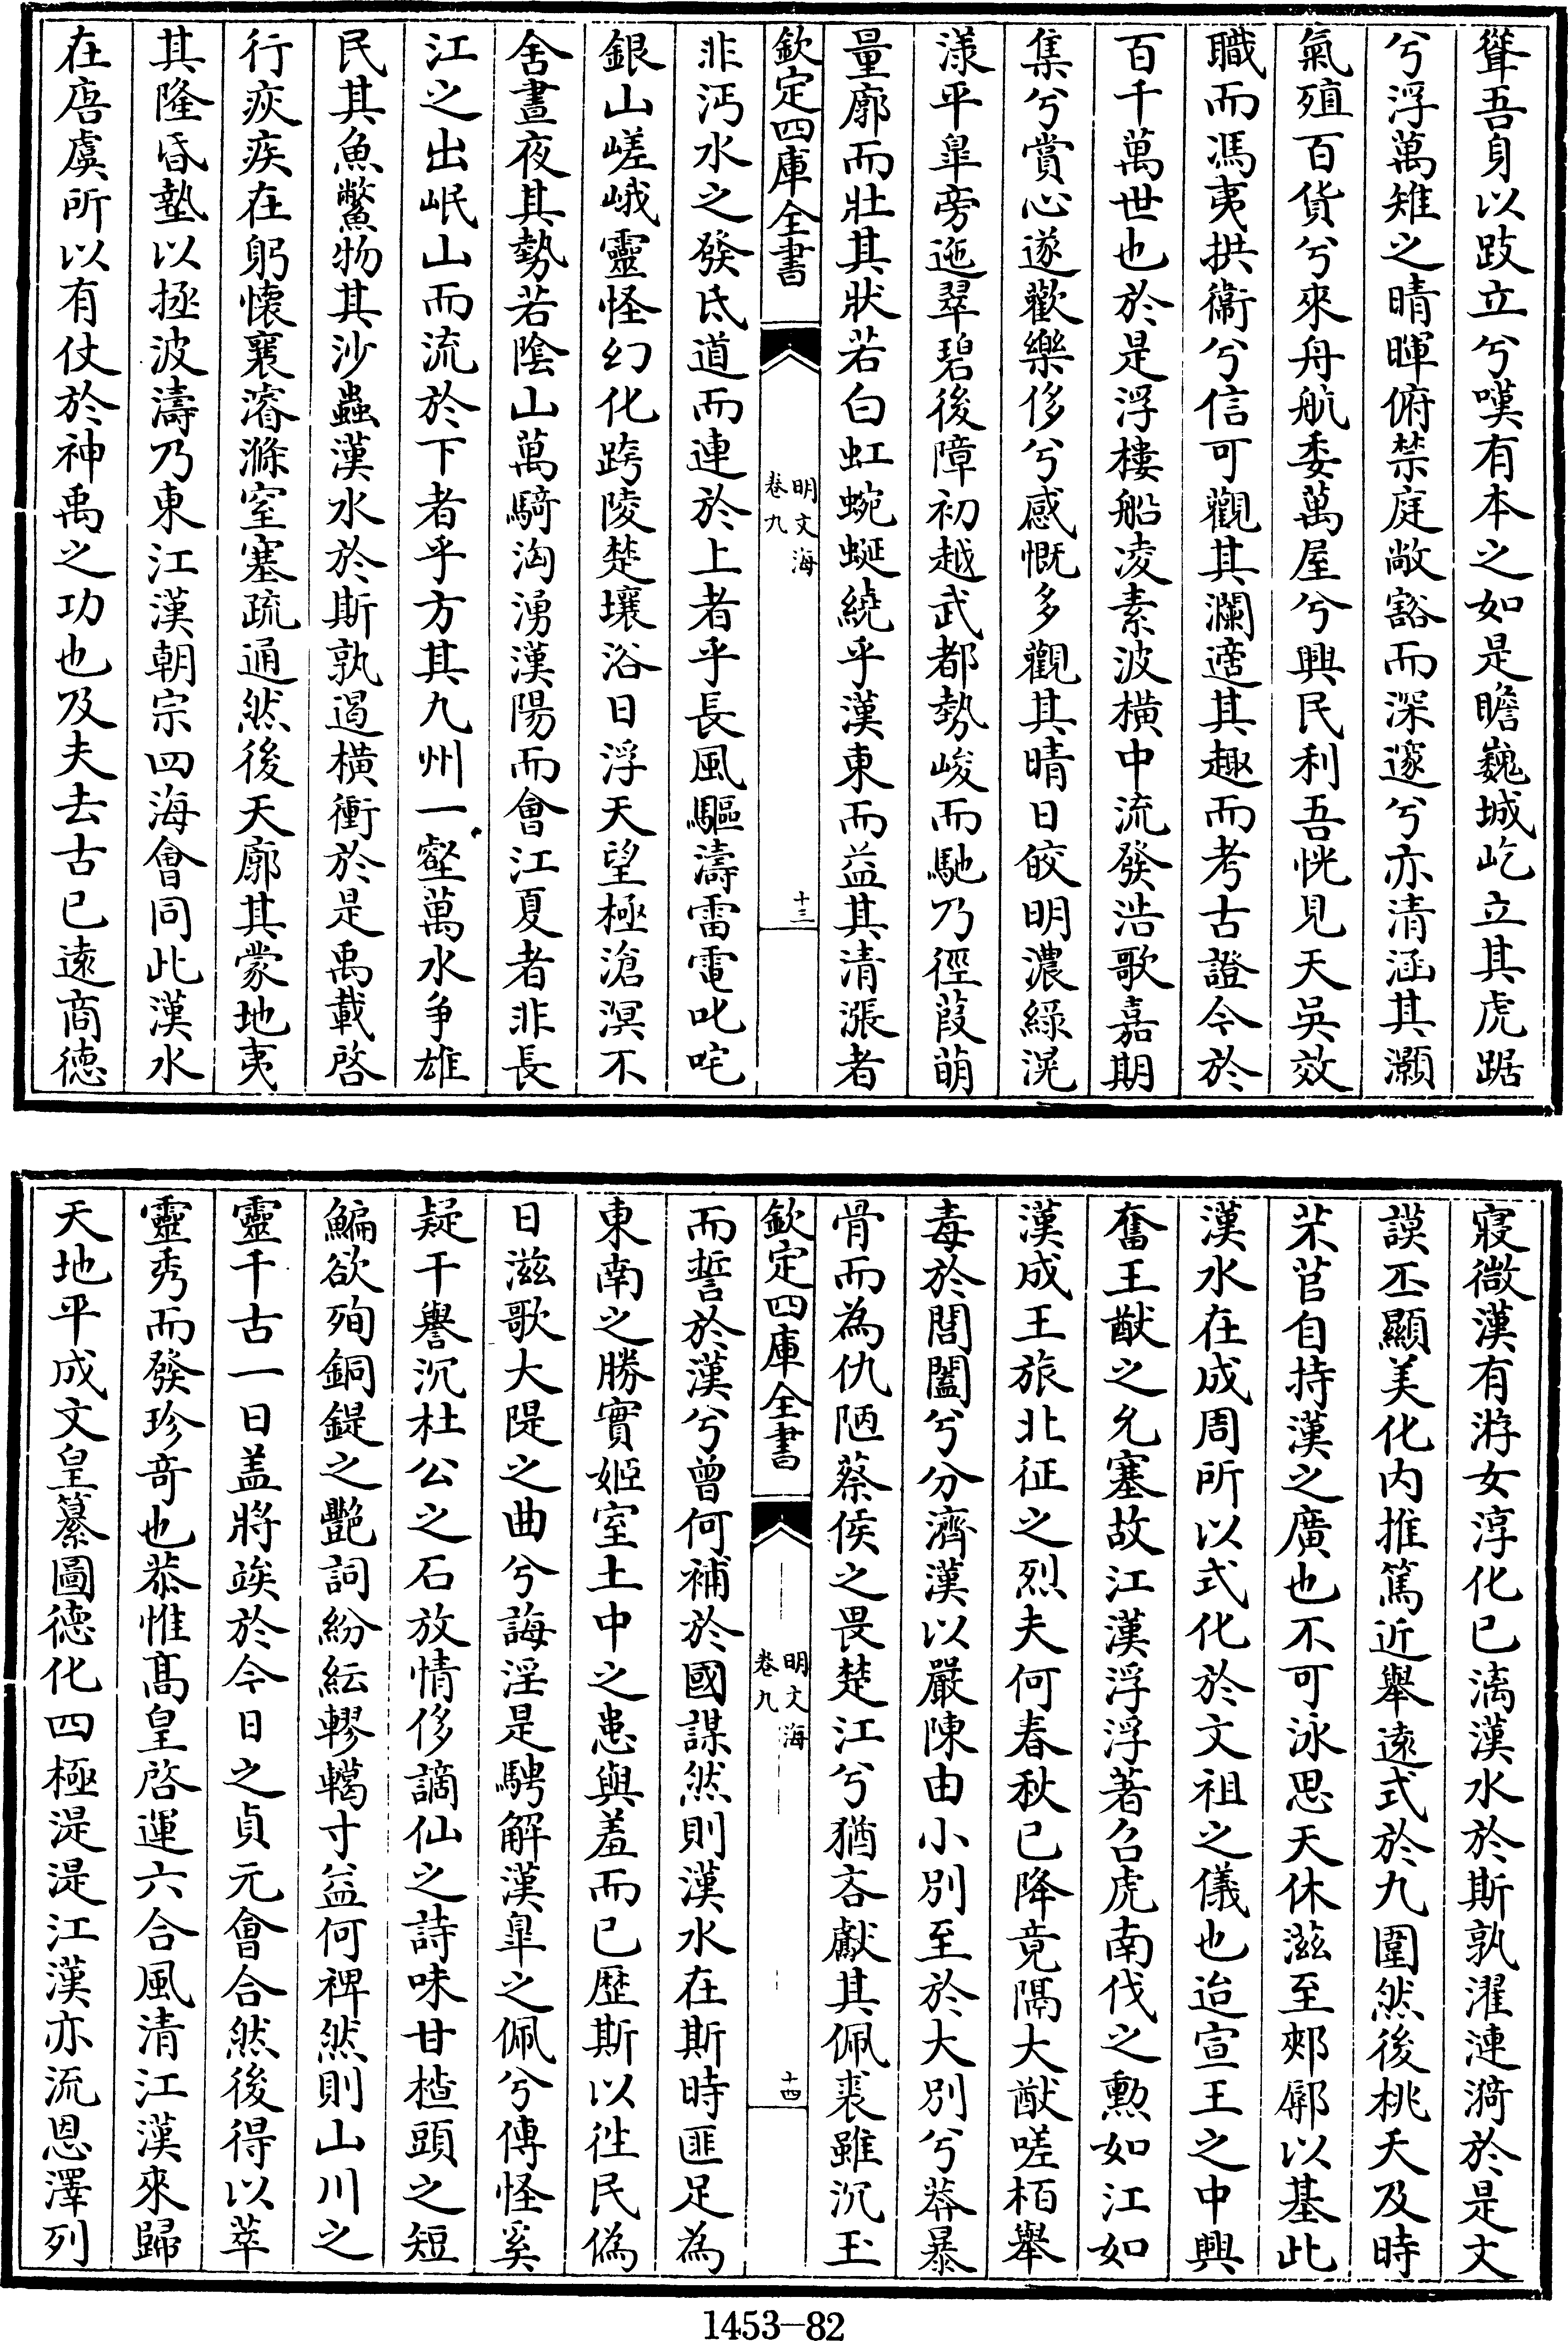 聳吾身以跂立兮嘆有本之如是瞻巍城屹立其虎踞
兮浮萬雉之晴暉俯禁庭敞豁而深邃兮亦清涵其灝
氣殖百貨兮來舟航委萬屋兮興民利吾恍見天吳效
職而馮夷拱衞兮信可觀其瀾適其趣而考古證今於
百千萬世也於是浮樓船凌素波橫中流發浩歌嘉期
集兮賞心遂歡樂侈兮感慨多觀其晴日皎明濃綠滉
漾平臯旁迤翠碧後障初越武都勢峻而馳乃徑葭萌
量廓而壯其狀若白虹蜿蜒繞乎漢東而益其清漲者
欽定四庫全書
明文海
卷九
十三
非沔水之發氐道而連於上者乎長風驅濤雷電叱咤
銀山嵯峨靈怪幻化跨陵楚壤浴日浮天望極滄溟不
舍晝夜其勢若陰山萬騎洶湧漢陽而會江夏者非長
江之出岷山而流於下者乎方其九州一壑萬水爭雄
民其魚鱉物其沙蟲漢水於斯孰遏橫衝於是禹載啓
行疢疾在躬懷襄濬滌窒塞疏通然後天廓其蒙地夷
其隆昏墊以拯波濤乃東江漢朝宗四海會同此漢水
在唐虞所以有仗於神禹之功也及夫去古已遠商德
寖微漢有游女淳化已漓漢水於斯孰濯漣漪於是文
謨丕顯美化內推篤近舉遠式於九圍然後桃夭及時
芣苢自持漢之廣也不可泳思天休滋至郟鄏以基此
漢水在成周所以式化於文祖之儀也迨宣王之中興
奮王猷之允塞故江漢浮浮著召虎南伐之勲如江如
漢成王旅北征之烈夫何春秋已降竟隔大猷嗟栢舉
毒於闔閭兮分濟漢以嚴陳由小別至於大別兮莽暴
骨而為仇陋蔡侯之畏楚江兮猶吝獻其佩裘雖沉玉
欽定四庫全書
明文海
卷九
十四
而誓於漢兮曾何補於國謀然則漢水在斯時匪足為
東南之勝實姬室土中之患與羞而已歴斯以徃民偽
日滋歌大隄之曲兮誨淫是騁解漢臯之佩兮傳怪奚
疑干譽沉杜公之石放情侈謫仙之詩味甘楂頭之短
鯿欲殉銅鍉之艷詞紛紜轇轕寸益何禆然則山川之
靈千古一日盖將竢於今日之貞元會合然後得以萃
靈秀而發珍奇也恭惟髙皇啓運六合風清江漢來歸
天地平成文皇纂圖德化四極湜湜江漢亦流恩澤列
1453-82